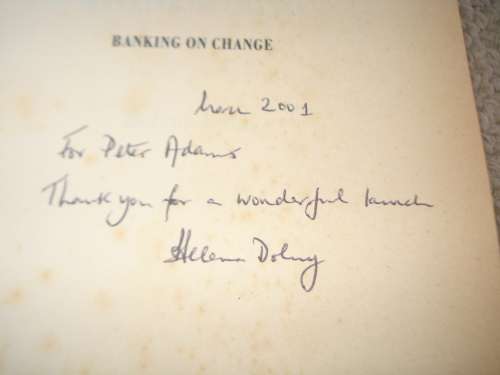 BANKING ON CHANGE
2001
For Peter Adams
Thank you for a wonderful launch
Helena Dolny